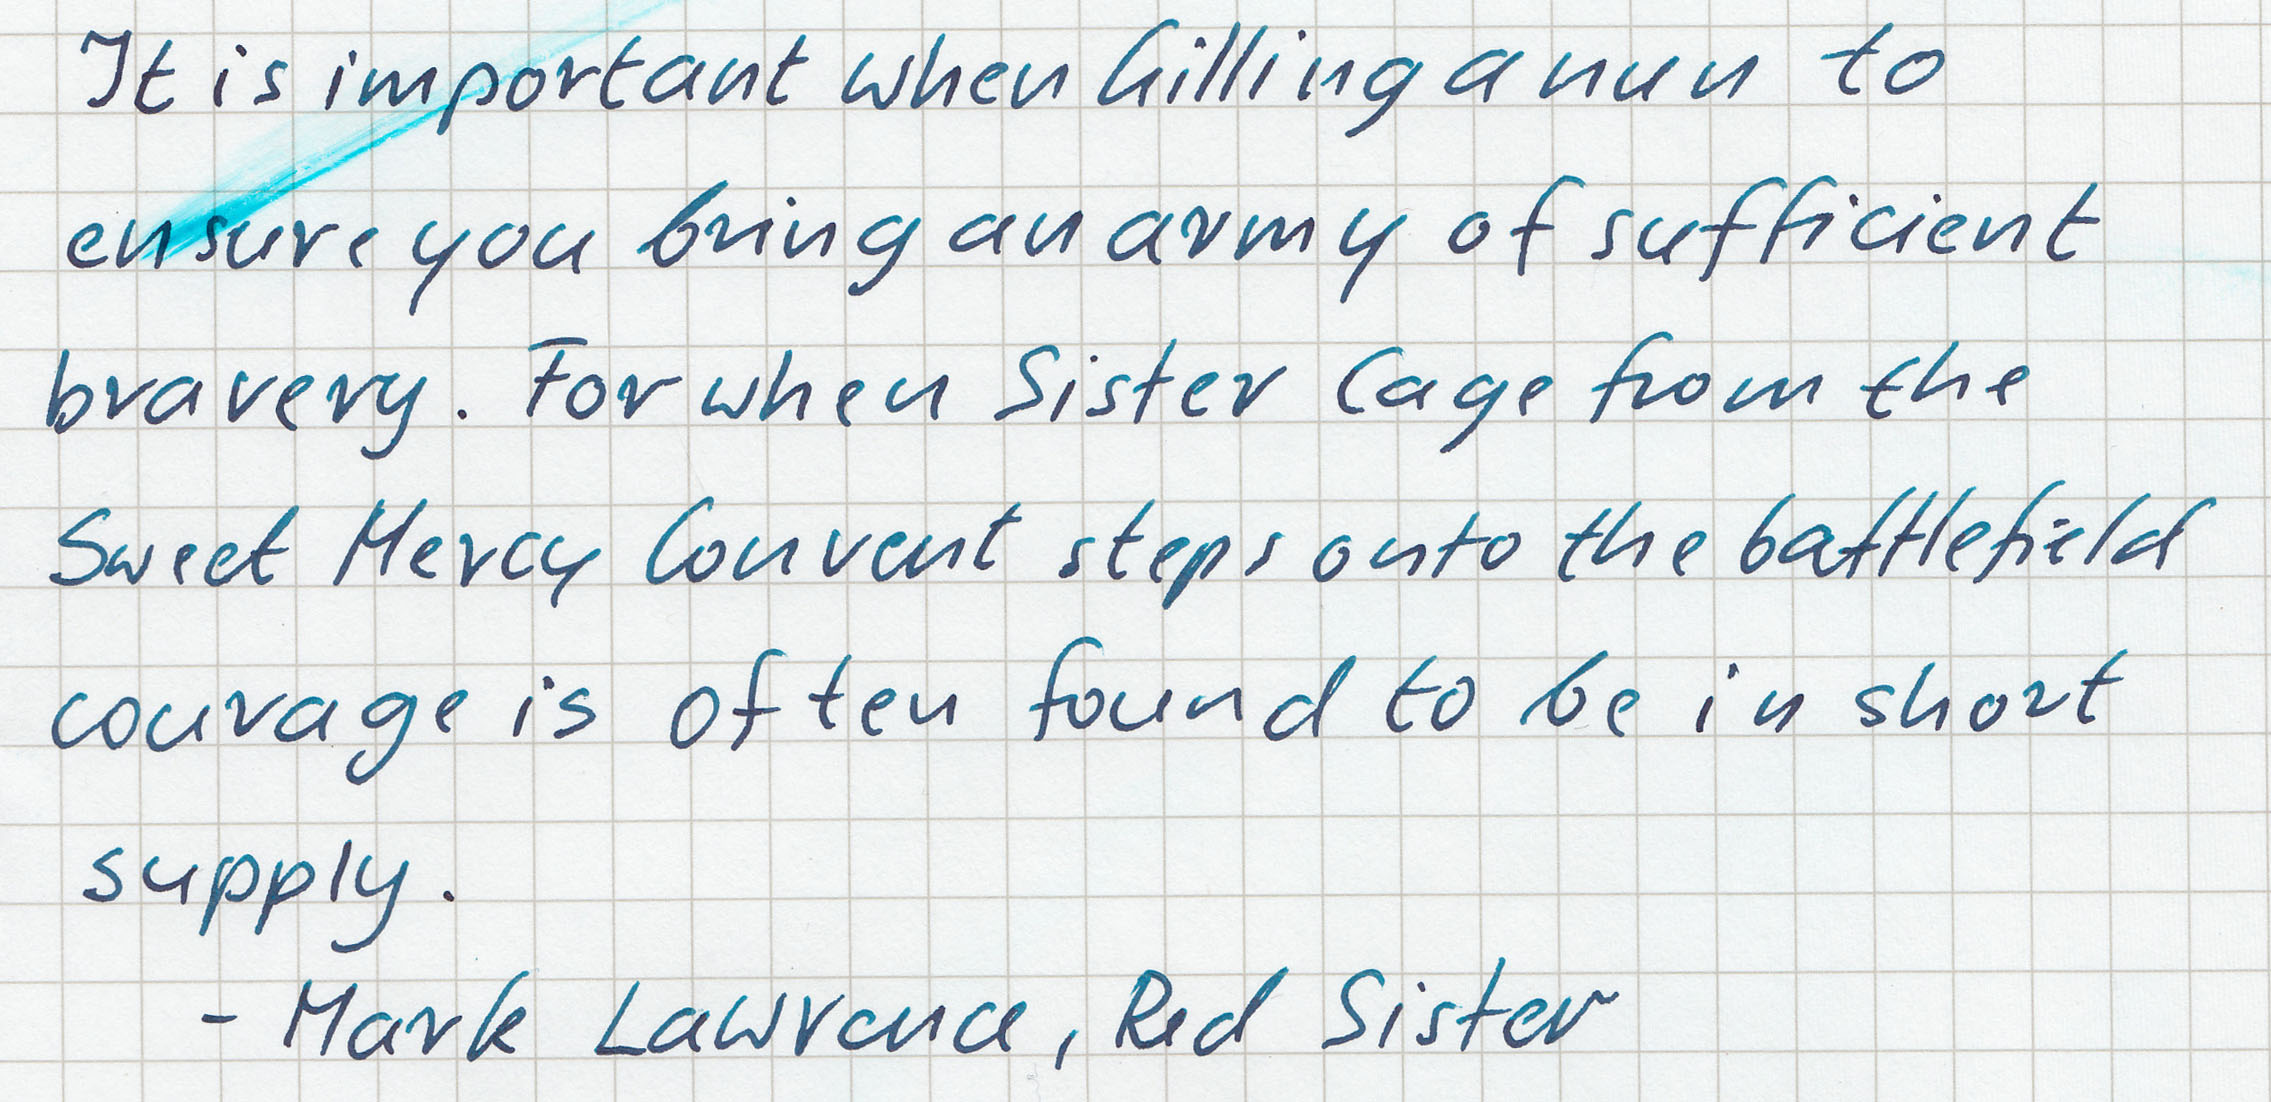 It is important when killing a nun to
ensure you bring an army of sufficient
bravery. For when Sister Cage from the
Sweet Mercy Convent steps onto the battlefield
courage is often found to be in short
supply.
- Mark Lawrence, Red Sister